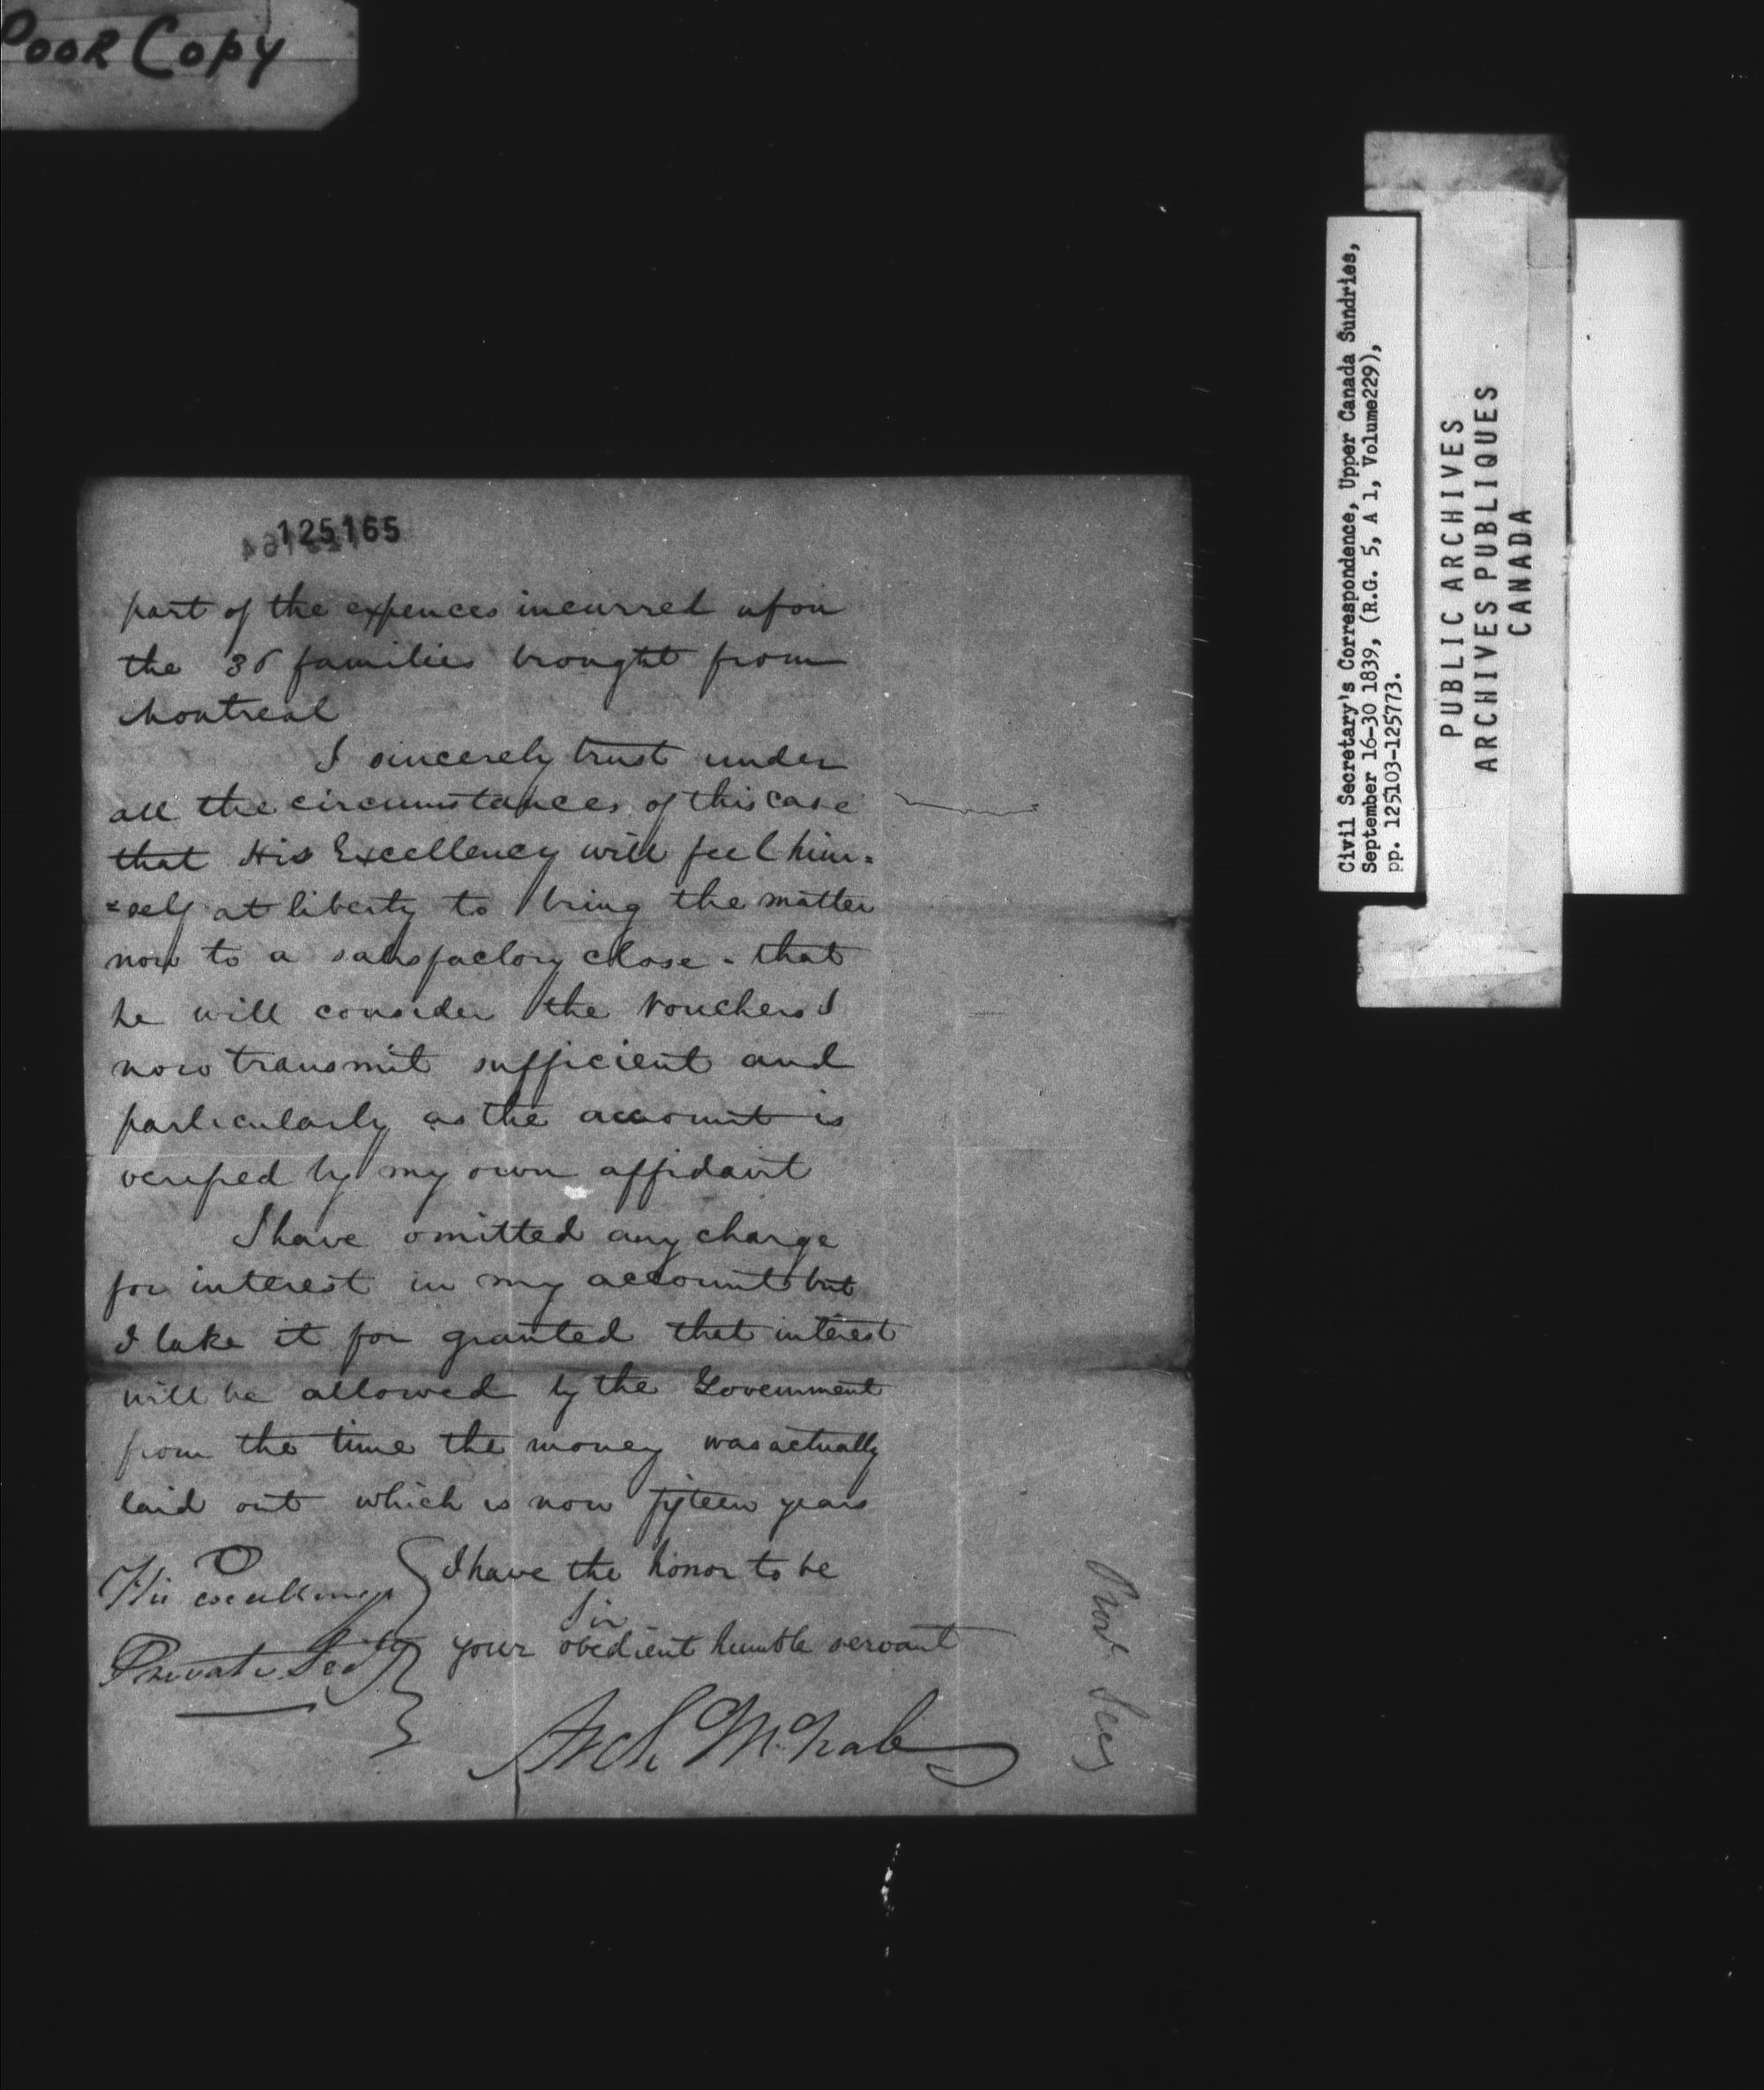 Poor Copy
125165
part of the expences incurred upon
the 36 families brought from
Montreal
I sincerely trust under
all the circumstances of this case
that His Excellency will feel him-
=self at liberty to bring the matter
now to a satisfactory close - that
he will consider the vouchers I
now transmit sufficient and
particularly as the account is
verified by my own affidavit
I have omitted any charge
for interest in my account but
I take it for granted that interest
will be allowed by the Government
from the time the money was actually
laid out which is now fifteen years
I have the honor to be
Sir
your obedient humble servant
Arch McNab
His Excellency
Private Secy
Private Secy
Civil Secretary's Correspondence, Upper Canada Sundries,
September 16-30 1839, (R.G. 5, A 1, Volume229),
pp. 125103-125773.
PUBLIC ARCHIVES
ARCHIVES PUBLIQUES
CANADA